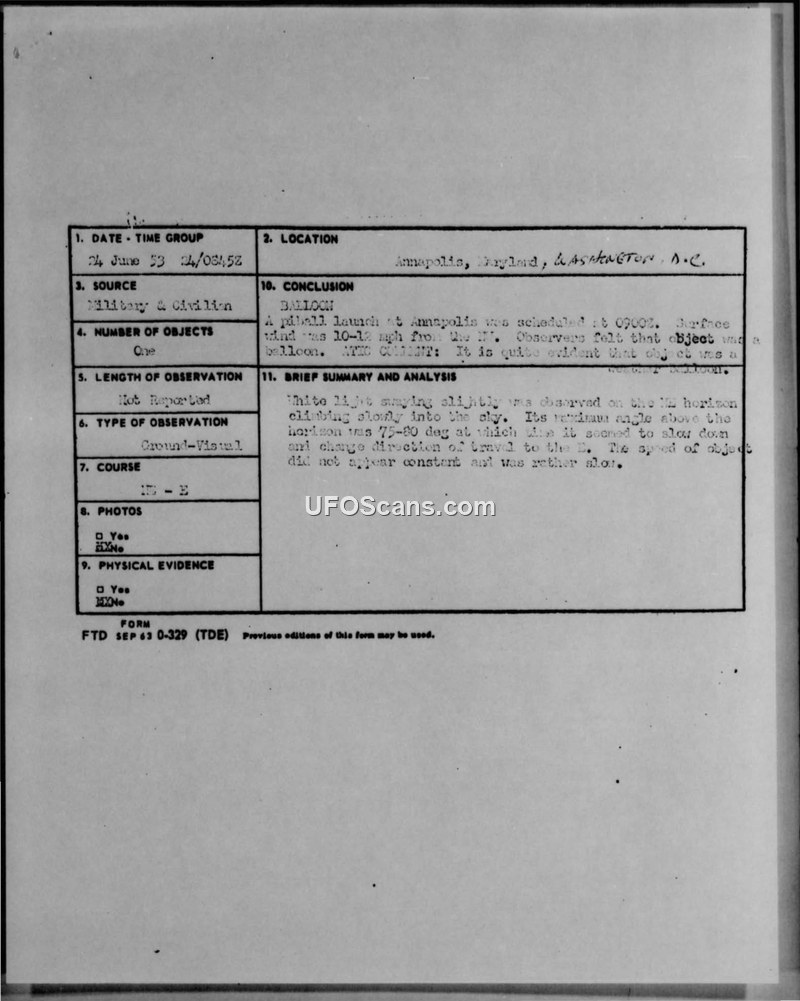 1. DATE - TIME GROUP
24 June 53 24/0845Z
2. LOCATION
Annapolis, Maryland, WASHINGTON. D.C.
3. SOURCE
Military & Civilian
10. CONCLUSION
BALLOON
A piball launch at Annapolis was scheduled at 0900Z. Surface
wind was 10-12 mph from the Observers felt that object was a
balloon. ATIC COMMENT: It is quite evident that object was a
weather balloon.
4. NUMBER OF OBJECTS
One
5. LENGTH OF OBSERVATION
Not Reported
11. BRIEF SUMMARY AND ANALYSIS
White light swaying slightly was observed on the NE horizon
climbing slowly into the sky. Its maximum angle above the
horizon was 75-80 deg at which time it seemed to slow down
and change direction of travel to the E. The speed of object
did not appear constant and was rather slow.
6. TYPE OF OBSERVATION
Ground-Visual
7. COURSE
NE - E
8. PHOTOS
□ Yes
No
9. PHYSICAL EVIDENCE
□ Yes
No
UFOScans.com
FORM
FTD SEP 63 0-329 (TDE) Previous editions of this form may be used.